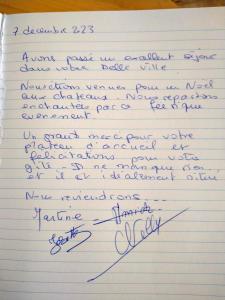 7 decembre 223
Avons passé un excellent séjour
dans votre belle ville
Nous étions venues pour un Noël
aux chateaux. Nous repartons
enchantées par ce féérique
evenement.
Un grand merci pour votre
plateau d'accueil et
félicitations pour votre
gîte. Il ne manque rien
et il est idéalement situé
Nous reviendrons...
Martine
Nelly